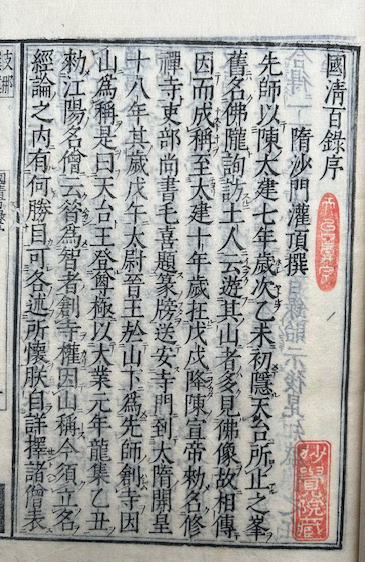 國清百錄序
隋沙門灌頂撰
先師以陳太建七年歲次乙未初隱天台所止之峯
舊名佛隴詢訪土人云遊其山者多見佛像故相傳
因而成稱至大建十年歲在戊戌降陳宣帝勑名修
禪寺吏部尚書毛喜題篆牓送安寺門到大隋開皇
十八年其歲戊午太尉晉王於山下爲先師創寺因
山爲稱是曰天台王登尊極以大業元年龍集乙丑
勑江陽名僧云昔爲智者創寺權因山稱今須立名
經論之內有何勝目可各述所懷朕自詳擇諸僧表
妙覺院藏